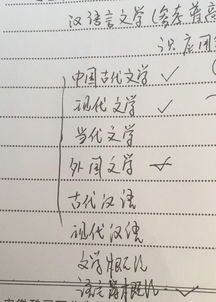 汉语言文学(务农首高
识应用
中国古代文学 ✓
现代文学 ✓
当代文学
外国文学 ✓
古代汉语
现代汉语
文学概论
语言学概论 ✓